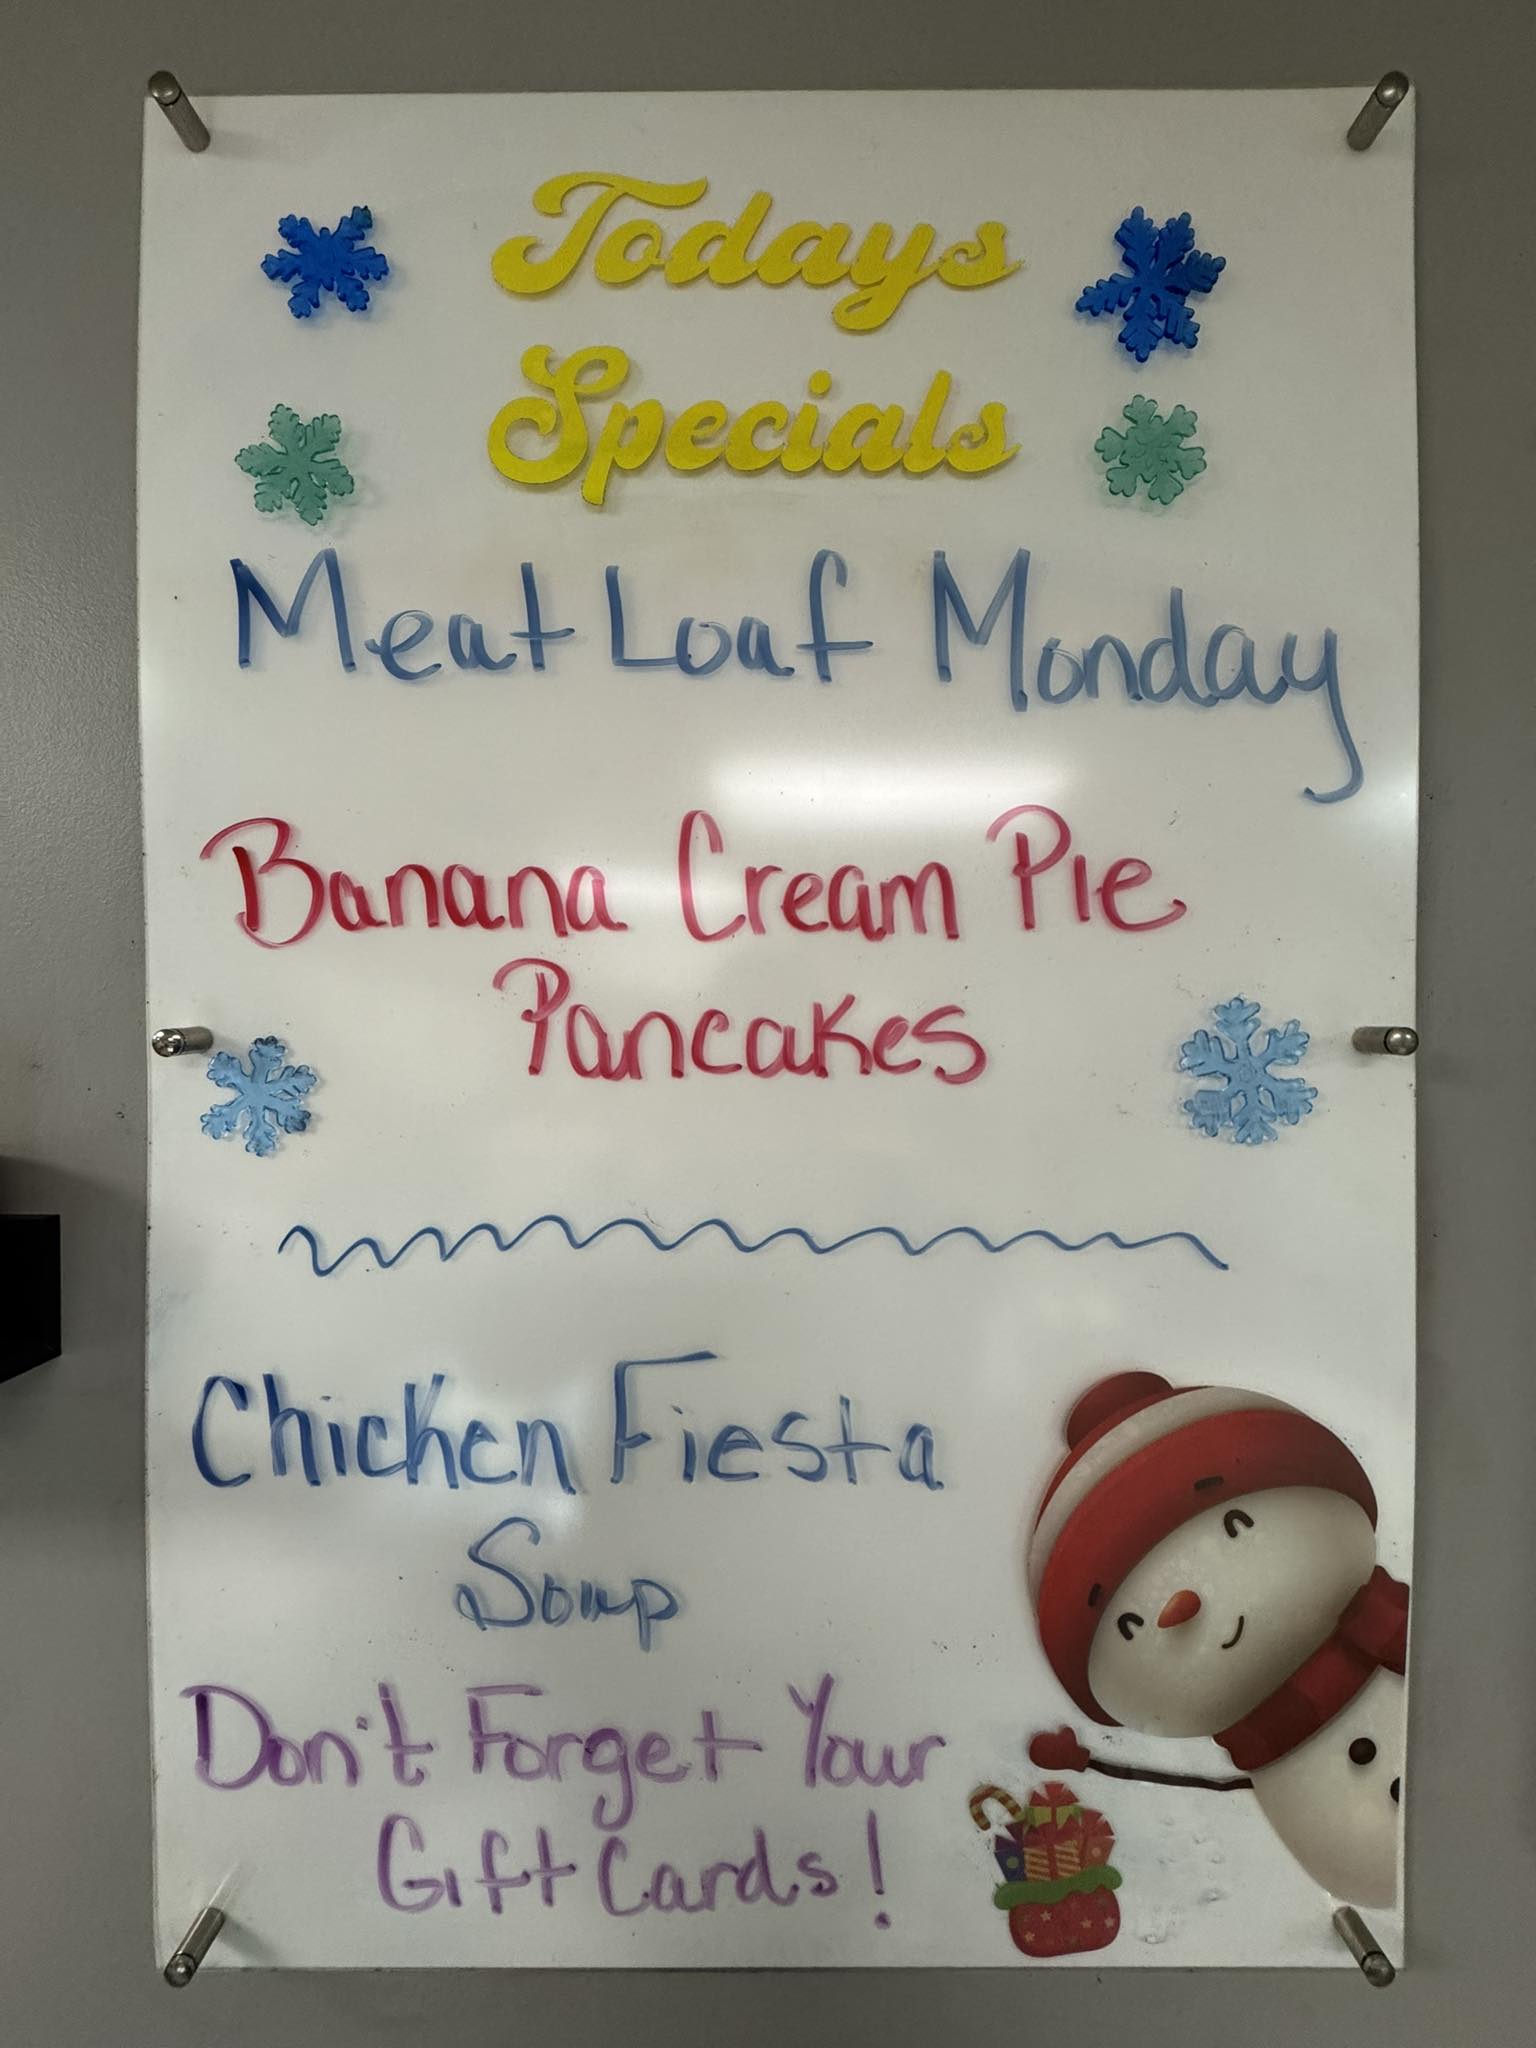 Todays
Specials
Meat Loaf Monday
Banana Cream Pie
Pancakes
Chicken Fiesta
Soup
Don't Forget Your
Gift Cards!